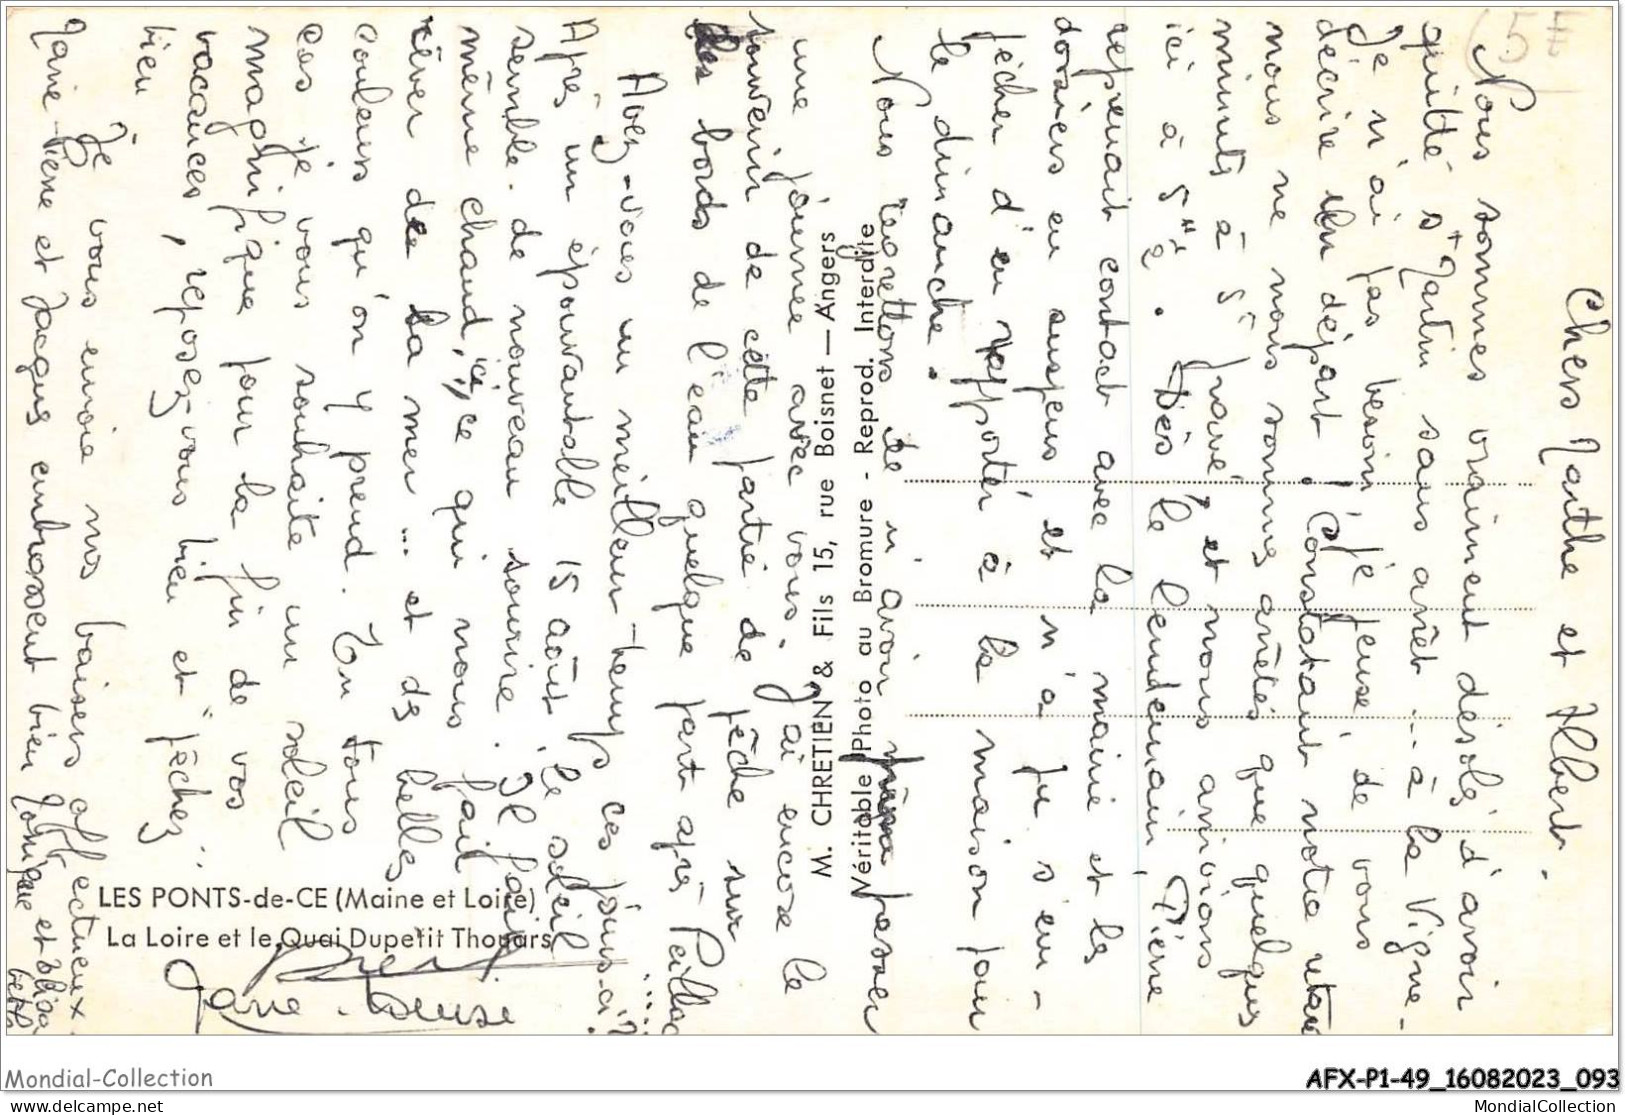 Chers Marthe et Albert.
Nous sommes vraiment désolés d'avoir
quitté St Martin sans arrêt ... à la Vigne.
Je n'ai pas besoin, je pense, de vous
décrire un départ ! Constatant notre retard
nous ne nous sommes arrêtés que quelques
minutes à 5h privé, et nous arrivions
ici à 5h 1/2. Dès le lendemain, Pierre
reprenait contact avec la mairie et les
dossiers en suspens et n'a pu s'em-
pêcher d'en rapporter à la maison pour
le dimanche.
Nous regrettons de n'avoir pu passer
une journée avec vous. J'ai encore le
souvenir de cette partie de pêche sur
les bords de l'eau quelque part après Peillac ....
Avez-vous un meilleur temps ces jours-ci ?
Après un épouvantable 15 août le soleil
semble de nouveau sourire. Il fait
même chaud, ici, ce qui nous fait
rêver de la mer ... et de belles
couleurs qu'on y prend. En tous
cas je vous souhaite un soleil
magnifique pour la fin de vos
vacances, reposez-vous bien et "pêchez"
bien
Je vous envoie nos baisers affectueux.
Marie-Pierre et Jacques embrassent bien Monique et
Marie-Louise
M. CHRETIEN & Fils 15, rue Boisnet — Angers
Véritable Photo au Bromure - Reprod. Interdite
LES PONTS-de-CE (Maine et Loire)
La Loire et le Quai Dupetit Thouars
Mondial-Collection
AFX-P1-49_16082023_093
MondialCollection.com
MondialCollection